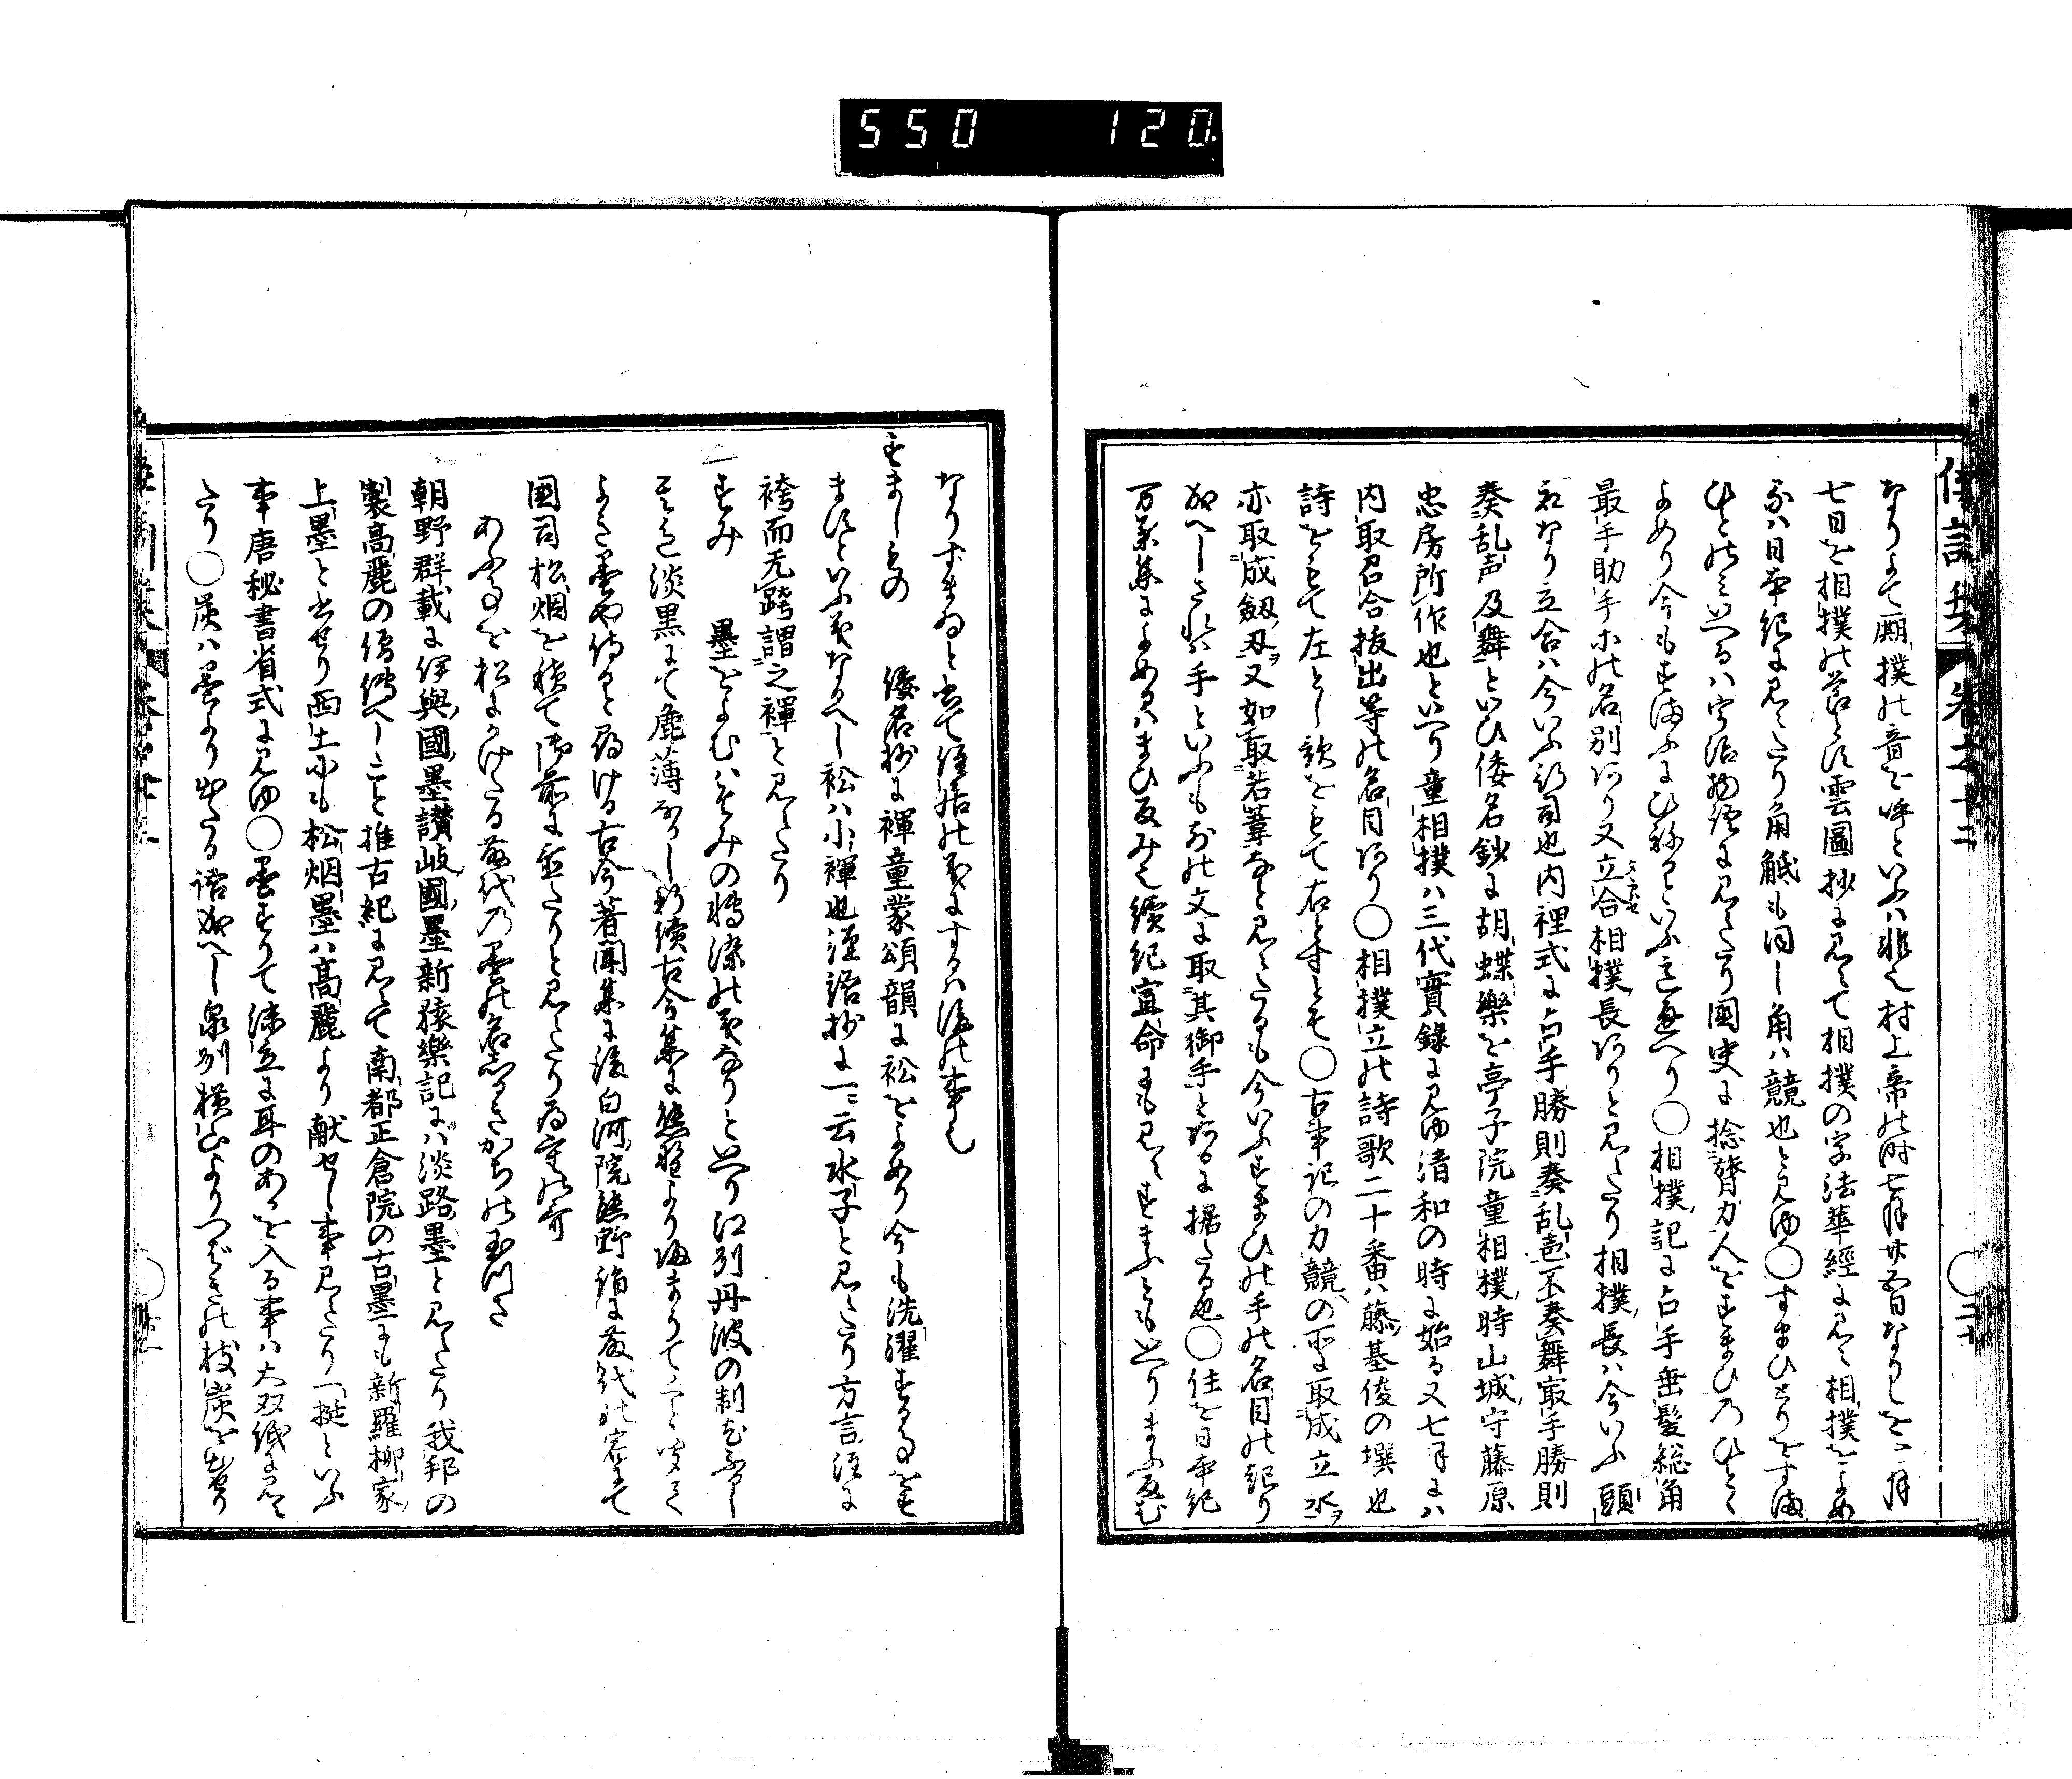 550 120
なりよて廝撲の音を呼といふハ非也村上帝の時七月廿五日なりしを二月
七日を相撲の節とす雲圖抄に見えて相撲の字法華經に見え相撲をよめ
るハ日本紀に見えたり角觝も同し角ハ競也と見ゆ〇すまひとりをすま
ひとのミいへるハ宇治物語に見えたり國史に捻膂力人をすまひのひとゝ
よめり今もすまふにひねるといふ言あへり〇相撲記に占手垂髪総角
最手助手ホの名別あり又立合相撲長ありと見えたり相撲長ハ今いふ頭
取なり立合ハ今いふ行司也内裡式に占手勝則奏乱声不奏舞最手勝則
奏乱声及舞といひ倭名鈔に胡蝶樂を亭子院童相撲時山城守藤原
忠房所作也といへり童相撲ハ三代實錄に見ゆ清和の時に始る又七月にハ
内取召合抜出等の名目あり〇相撲立の詩歌二十番ハ藤基俊の撰也
詩をもて左とし歌をもて右とすとそ〇古事記の力競の所に取成立氷
亦取成劔刃又如取若葦なと見えたるも今いふすまひの手の名目の起り
成へしされハ手といふも前の文に取其御手とあるに據たる也〇住を日本紀
万葉集によめるハまひ反み也續紀宣命にも見えすまふともいへりまふ反む
なりすまゐと書て住居の義にするハ後の事也
すましもの 倭名抄に褌童蒙頌韻に衳をよめり今も洗濯する事をす
ますといふ義なるへし衳ハ小褌也漢語抄に一云水子と見えたり方言注に
袴而无跨謂之褌と見えたり
すみ 墨をよむハそみの轉染の義なりといへり江州丹波の制也なるへし
其色淡黒にて麁薄なるし新續古今集に熊野より帰まうて
よき墨や侍ると尋ける古今著聞集に後白河院熊野詣に藤代の宿にて
國司松烟を積て御前に置たりと見えたり為家の哥
あふ事を松にかけたる藤代の墨の名惡きかちの玉川さ
朝野群載に伊與國墨讃岐國墨新猿樂記にハ淡路墨と見えたり我邦の
製高麗の僧傳へしこと推古紀に見えて南都正倉院の古墨にも新羅柳家
上墨と出せり西土にも松烟墨ハ高麗より献せし事見えたり一挺といふ
事唐秘書省式に見ゆ〇墨すりて硃立に耳のあかを入る事ハ大双紙に見え
たり〇炭ハ墨より出たる語成へし泉州横山よりつばきの枝炭を出せり